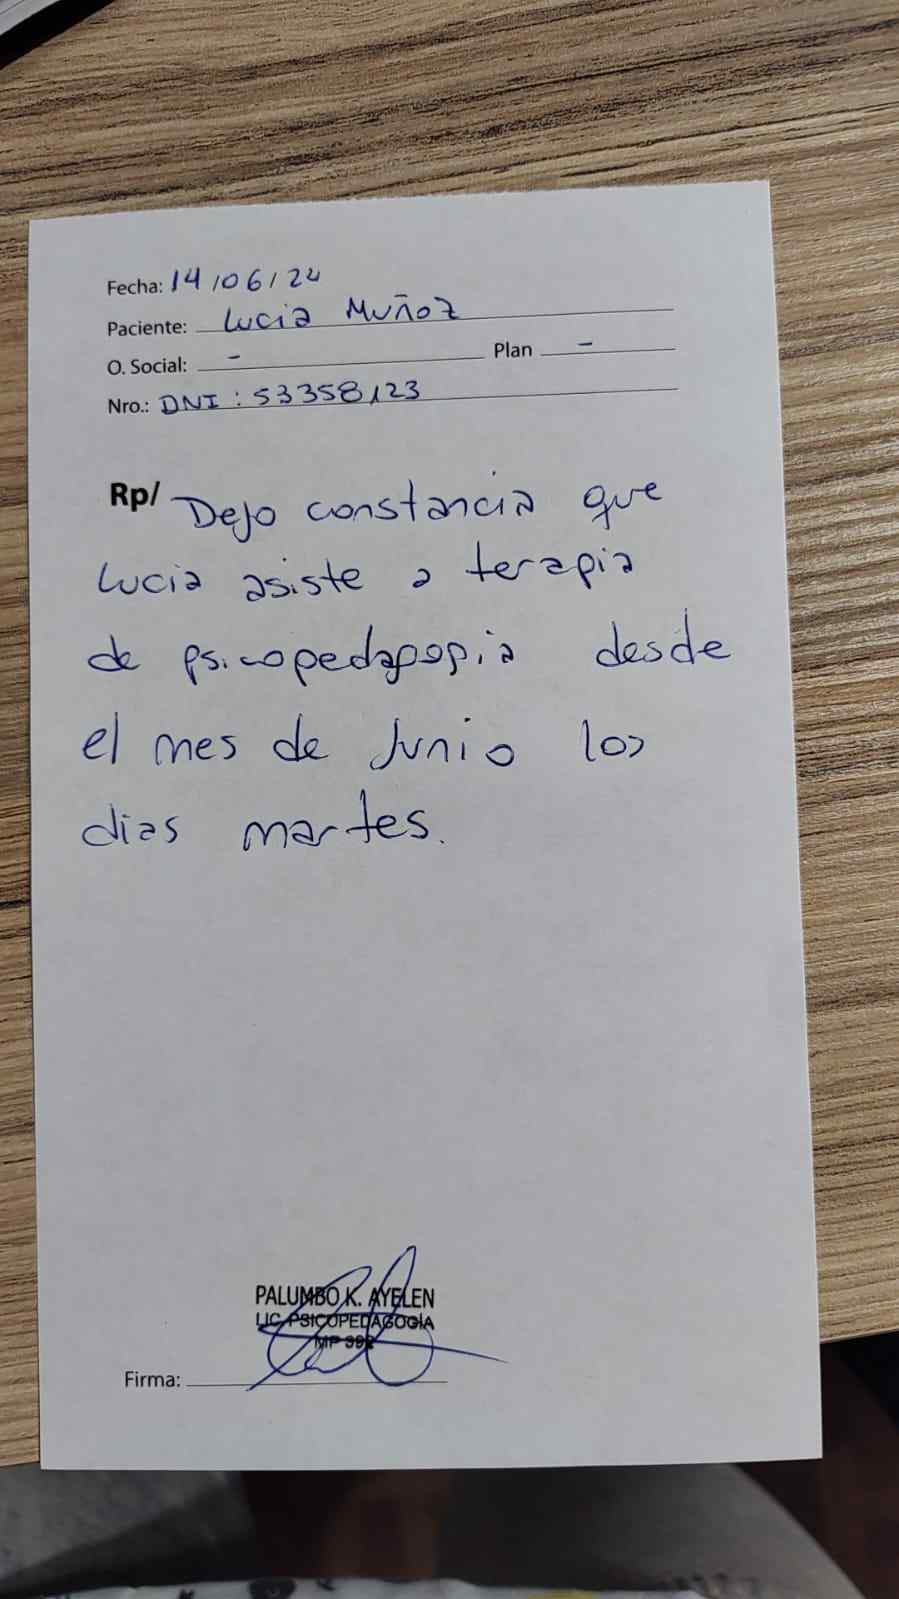 Fecha: 14/06/24
Paciente: Lucia Muñoz
O. Social: - Plan -
Nro.: DNI: 53358123
Rp/ Dejo constancia que
Lucia asiste a terapia
de psicopedagogia desde
el mes de Junio los
dias martes.
PALUMBO K. AYELEN
LIC. PSICOPEDAGOGÍA
MP 392
Firma: